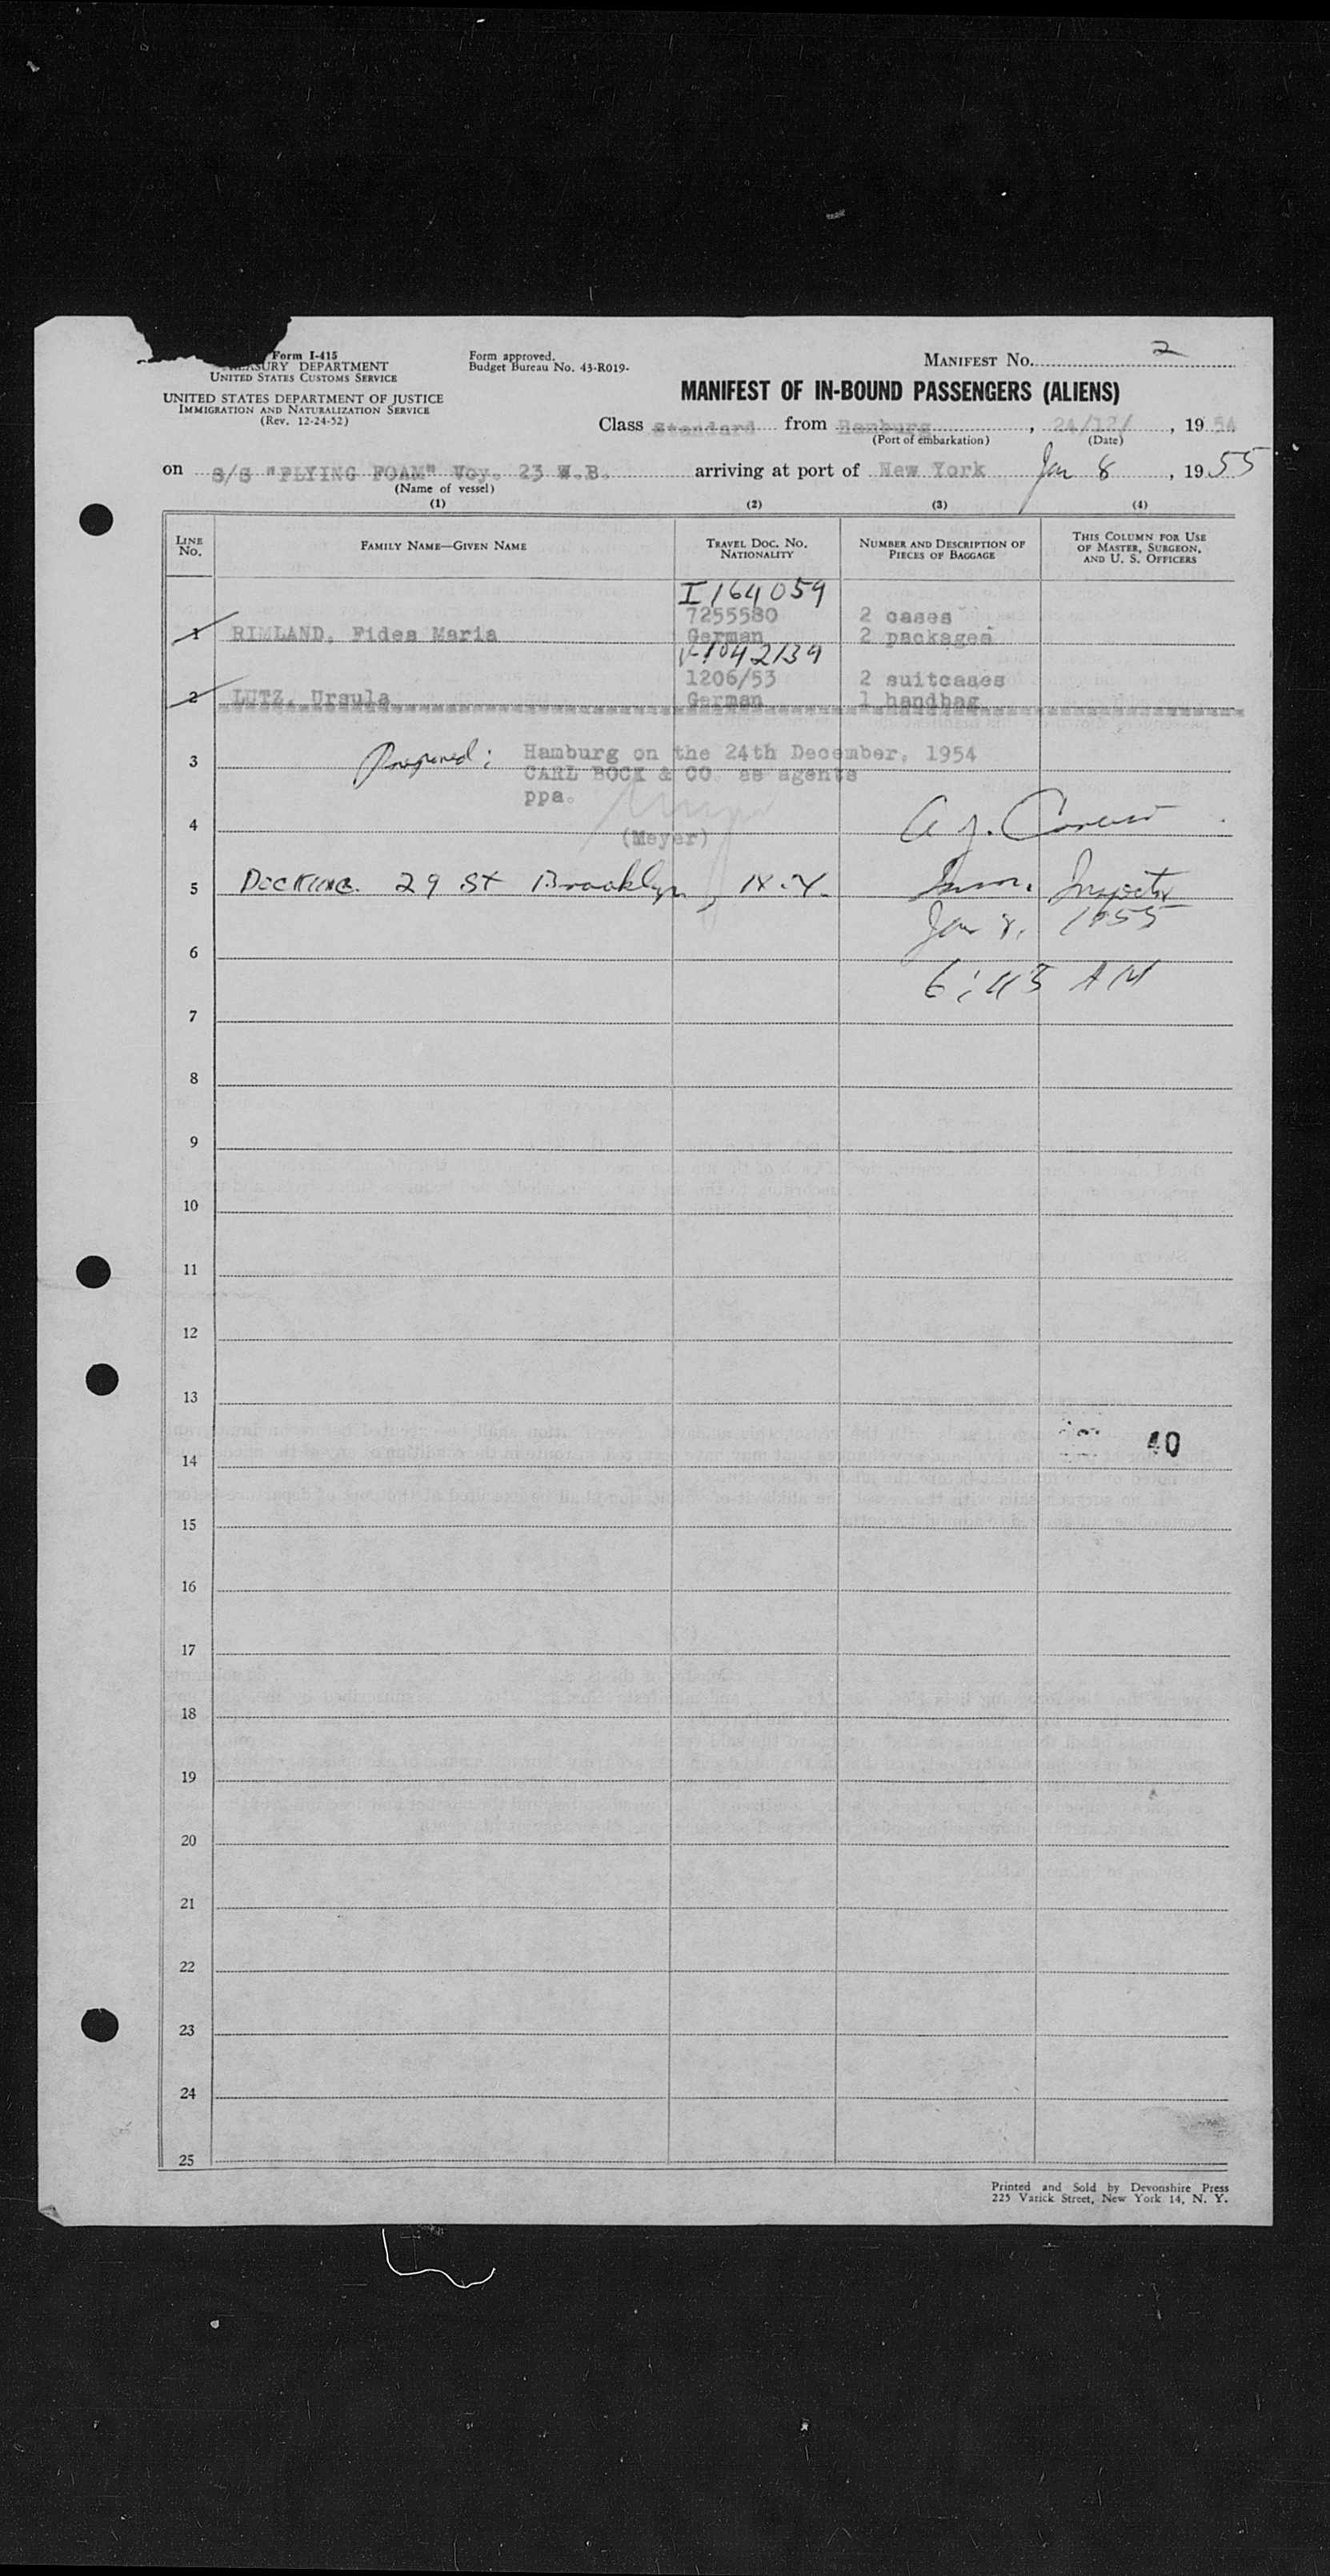 Form I-415
TREASURY DEPARTMENT
UNITED STATES CUSTOMS SERVICE
UNITED STATES DEPARTMENT OF JUSTICE
IMMIGRATION AND NATURALIZATION SERVICE
(Rev. 12-24-52)
Form approved.
Budget Bureau No. 43-R019-
MANIFEST NO. 2
MANIFEST OF IN-BOUND PASSENGERS (ALIENS)
Class Standard from Hamburg, 24/12/, 1954
(Port of embarkation) (Date)
on S/S "FLYING FOAM" Voy. 23 W.B. arriving at port of New York Jan 8, 1955
(Name of vessel)
(1) (2) (3) (4)
LINE NO. FAMILY NAME—GIVEN NAME TRAVEL DOC. NO. NATIONALITY NUMBER AND DESCRIPTION OF PIECES OF BAGGAGE THIS COLUMN FOR USE OF MASTER, SURGEON, AND U. S. OFFICERS
I 164059
7255580 2 cases
1 RIMLAND, Fides Maria German 2 packages
V-1042139
1206/53 2 suitcases
2 LUTZ, Ursula German 1 handbag
3 Prepared: Hamburg on the 24th December, 1954
CARL BOCK & CO. as agents
ppa.
4 (Meyer)
5 Docking 29 St Brooklyn, N.Y. Imm. Inspector
Jan 8, 1955
6
6:45 AM
7
8
9
10
11
12
13
14 40
15
16
17
18
19
20
21
22
23
24
25
Printed and Sold by Devonshire Press
225 Varick Street, New York 14, N. Y.